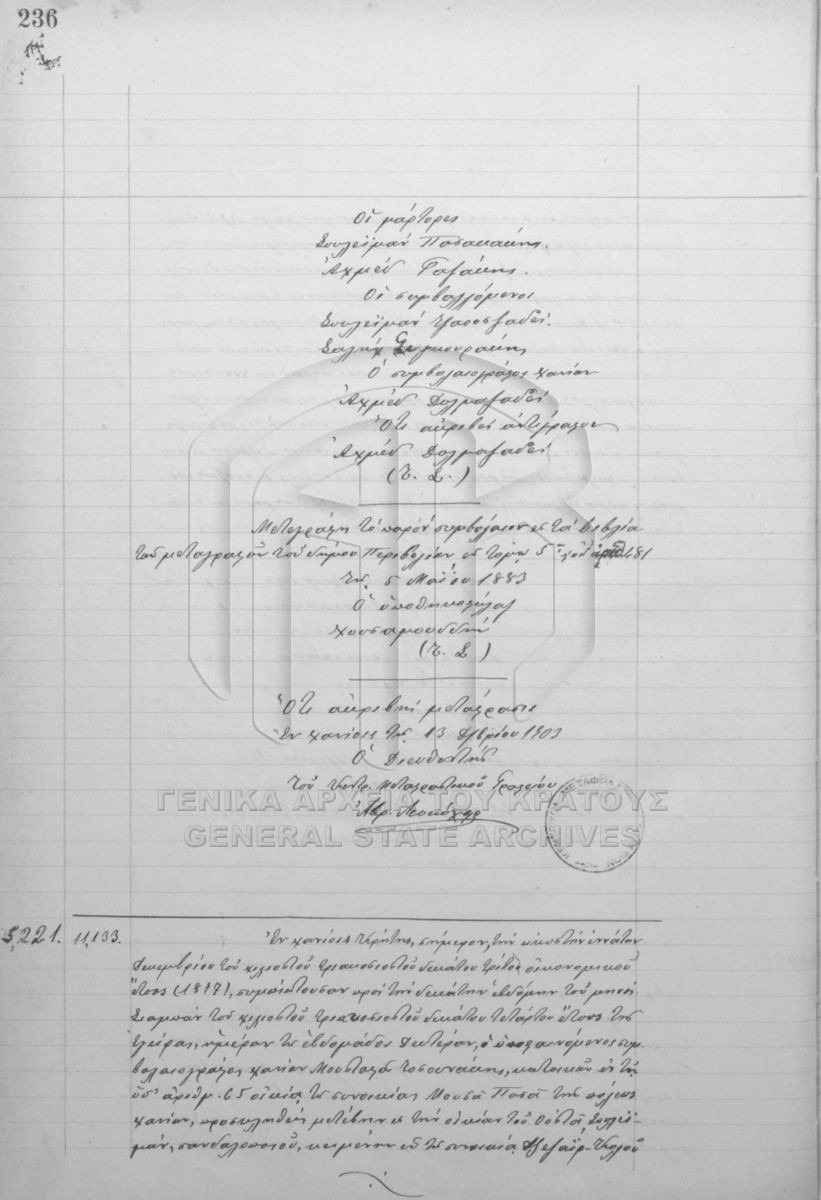 236
Οἱ μάρτυρες
Σουλεϊμάν Πασακάκης.
Ἀχμέδ Γαζάκης.
Οἱ συμβαλλόμενοι
Σουλεϊμάν
Σαλήχ
Ὁ συμβολαιογράφος Χανίων
Ἀχμέδ Δολμαζαδές
Ὅτι ἀκριβές ἀντίγραφον
Ἀχμέδ Δολμαζαδές
(Τ. Σ.)
Μετεγράφη τό παρόν συμβόλαιον εἰς τά βιβλία
τῶν μεταγραφῶν τοῦ δήμου Περιβολίων ἐν τόμῳ 5ῳ 481
τῇ 5 Μαΐου 1883
Ὁ ὑποθηκοφύλαξ
Χουσαμουδδήν
(Τ. Σ.)
Ὅτι ἀκριβής μετάφρασις
Ἐν Χανίοις τῇ 13 1903
Ὁ Διευθυντής
τοῦ Κεντρ. Μεταφραστικοῦ Γραφείου
ΓΕΝΙΚΑ ΑΡΧΕΙΑ ΤΟΥ ΚΡΑΤΟΥΣ
GENERAL STATE ARCHIVES
5,221. 11,133. Ἐν Χανίοις Κρήτης, σήμερον, τήν εἰκοστήν ἐννάτην
Δεκεμβρίου τοῦ χιλιοστοῦ τριακοσιοστοῦ δεκάτου τρίτου οἰκονομικοῦ
ἔτους (1897), συμπίπτουσαν πρός τήν δεκάτην ἑβδόμην τοῦ μηνός
Σιαμπάν τοῦ χιλιοστοῦ τριακοσιοστοῦ δεκάτου πέμπτου ἔτους τῆς
Ἐγείρας, ἡμέραν τῆς ἑβδομάδος Δευτέραν, ὁ ὑποφαινόμενος συμ-
βολαιογράφος Χανίων Μουσταφᾶ Τοσουνάκης, κατοικῶν ἐν τῇ
ὑπ' ἀριθμ. 65 οἰκίᾳ τῆς συνοικίας Μουσᾶ Πασᾶ τῆς πόλεως
Χανίων, προσκληθείς μετέβην εἰς τήν οἰκίαν τοῦ Οὐστᾶ Σουλεϊ-
μάν, σανδαλοποιοῦ, κειμένην ἐν τῇ συνοικίᾳ